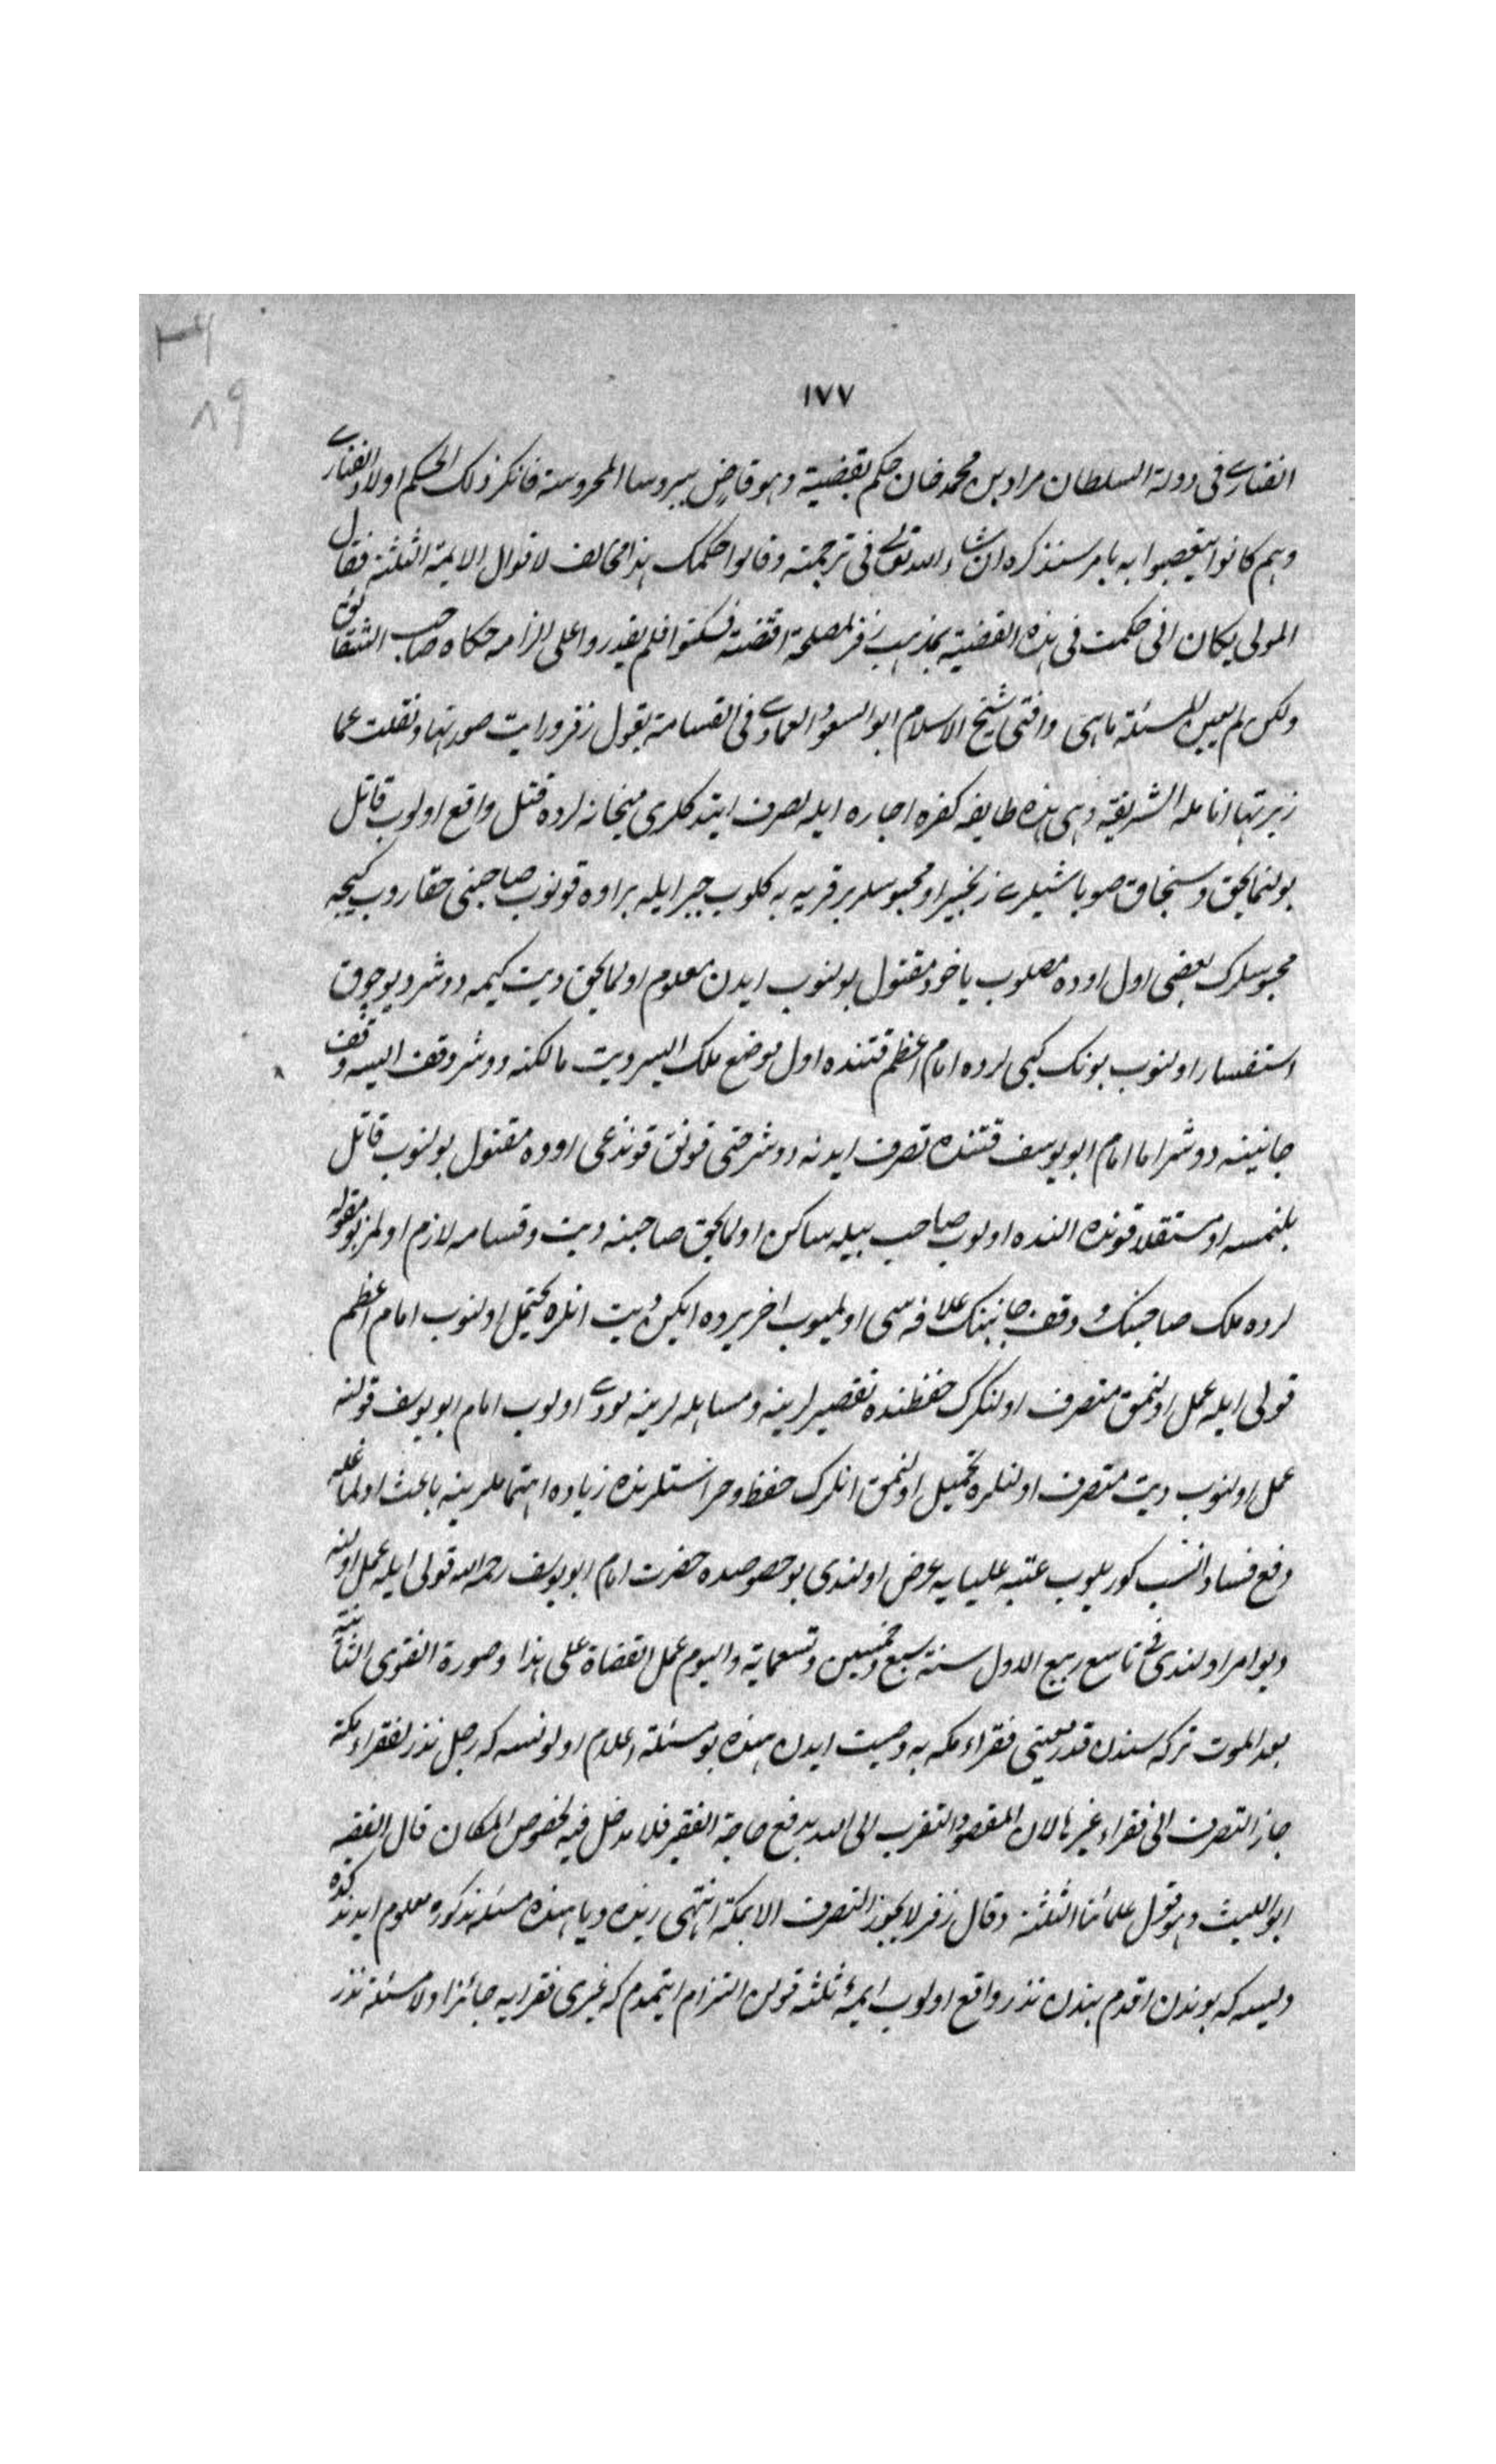 ١٧٧
الفناري فى دولة السلطان مراد بن محمد خان حكم بقضية وهو قاض ببروسا المحروسة فانكر ذلك الحكم اولاد الفناري
وهم كانوا يتعصبوا به بامر سنذكره ان شاء الله تعالى فى ترجمته وقالوا حكمك هذا مخالف لاقوال الايمة الثلثة فقال
المولى يكان انى حكمت فى هذه القضية بمذهب زفر لمصلحة اقتضته فسكتوا فلم يقدروا على الزامه حكاه صاحب الشقائق
ولكن لم يعين المسئلة ماهى وافتى شيخ الاسلام ابو السعود العمادي فى القسامة بقول زفر ورايت صورتها ونقلت عما
زبرتها انامله الشريفة وهى هذه طايفه كفره اجاره ايله تصرف ايتدكلرى ميخانه لرده قتل واقع اولوب قاتل
بولنمايجق وسنجاق صوباشيلرى زنجير او محبوسلر بر قريه يه كلوب جبر ايله بر اوه قونوب صاحبنى چقاروب كيجه
محبوسلرك بعضى اول اوده مصلوب ياخود مقتول بولنوب ايدن معلوم اولمايجق ديت كيمه دوشر ديو چوق
استفسار اولنوب بونك كبى لرده امام اعظم قتنده اول موضع ملك ايسه ديت مالكنه دوشر وقف ايسه وقف
جانبينه دوشر اما امام ابو يوسف قتنده تصرف ايدنه دوشر حتى قونق قوندغى اوده مقتول بولنوب قاتل
بلنمسه او مستقلا قونق النده اولوب صاحب بيله ساكن اولمايجق صاحبنه ديت وقسامه لازم اولمز بو مقوله
لرده ملك صاحبنك وقف جانبنك علاقه سى اولميوب اخر يرده ايكن ديت انلره تحميل اولنوب امام اعظم
قولى ايله عمل اولنمق متصرف اولنلرك حفظنده تقصيرلرينه ومساهله لرينه مودى اولوب امام ابو يوسف قولنه
عمل اولنوب ديت متصرف اولنلره تحميل اولنمق انلرك حفظ وحراستلرنده زياده اهتماملرينه باعث اولمغله
دفع فساده انسب كوريلوب عتبه عليايه عرض اولندى بو خصوصده حضرت امام ابو يوسف رحمه الله قولى ايله عمل اولنه
ديو امر اولندى فى تاسع ربيع الاول سنة سبع وخمسين وتسعماية واليوم عمل القضاة على هذا وصورة الفتوى الثانية
بعد الموت تركه سندن قدر معينى فقراء مكه يه وصيت ايدن هنده بو مسئلة اعلام اولونسه كه رجل نذر لفقراء مكة
جاز التصرف الى فقراء غيرها لان المقصود التقرب الى الله بدفع حاجة الفقير فلا مدخل فيه لخصوص المكان قال الفقيه
ابو الليث وهو قول علمائنا الثلثة وقال زفر لا يجوز التصرف الا بمكة انتهى زينده ويا هنده مسئله مذكوره معلوم ايدندكده
ديسه كه بوندن اقدم بندن نذر واقع اولوب ايمۀ ثلثه قولن التزام ايتمدم كه غيرى فقرايه جائز اولا مسئلۀ نذر